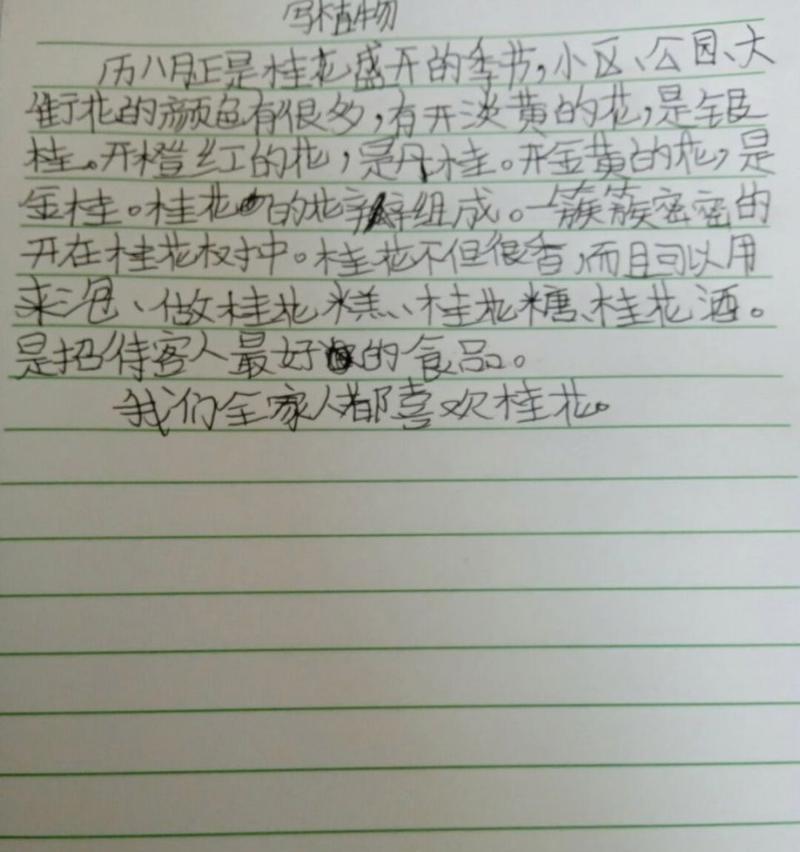 写植物
历八月正是桂花盛开的季节,小区、公园、大
街花的颜色有很多,有开淡黄的花,是银
桂。开橙红的花,是丹桂。开金黄的花,是
金桂。桂花的花瓣组成。一簇簇密密的
开在桂花树中。桂花不但很香,而且可以用
来泡、做桂花糕、桂花糖、桂花酒。
是招待客人最好的食品。
我们全家人都喜欢桂花。